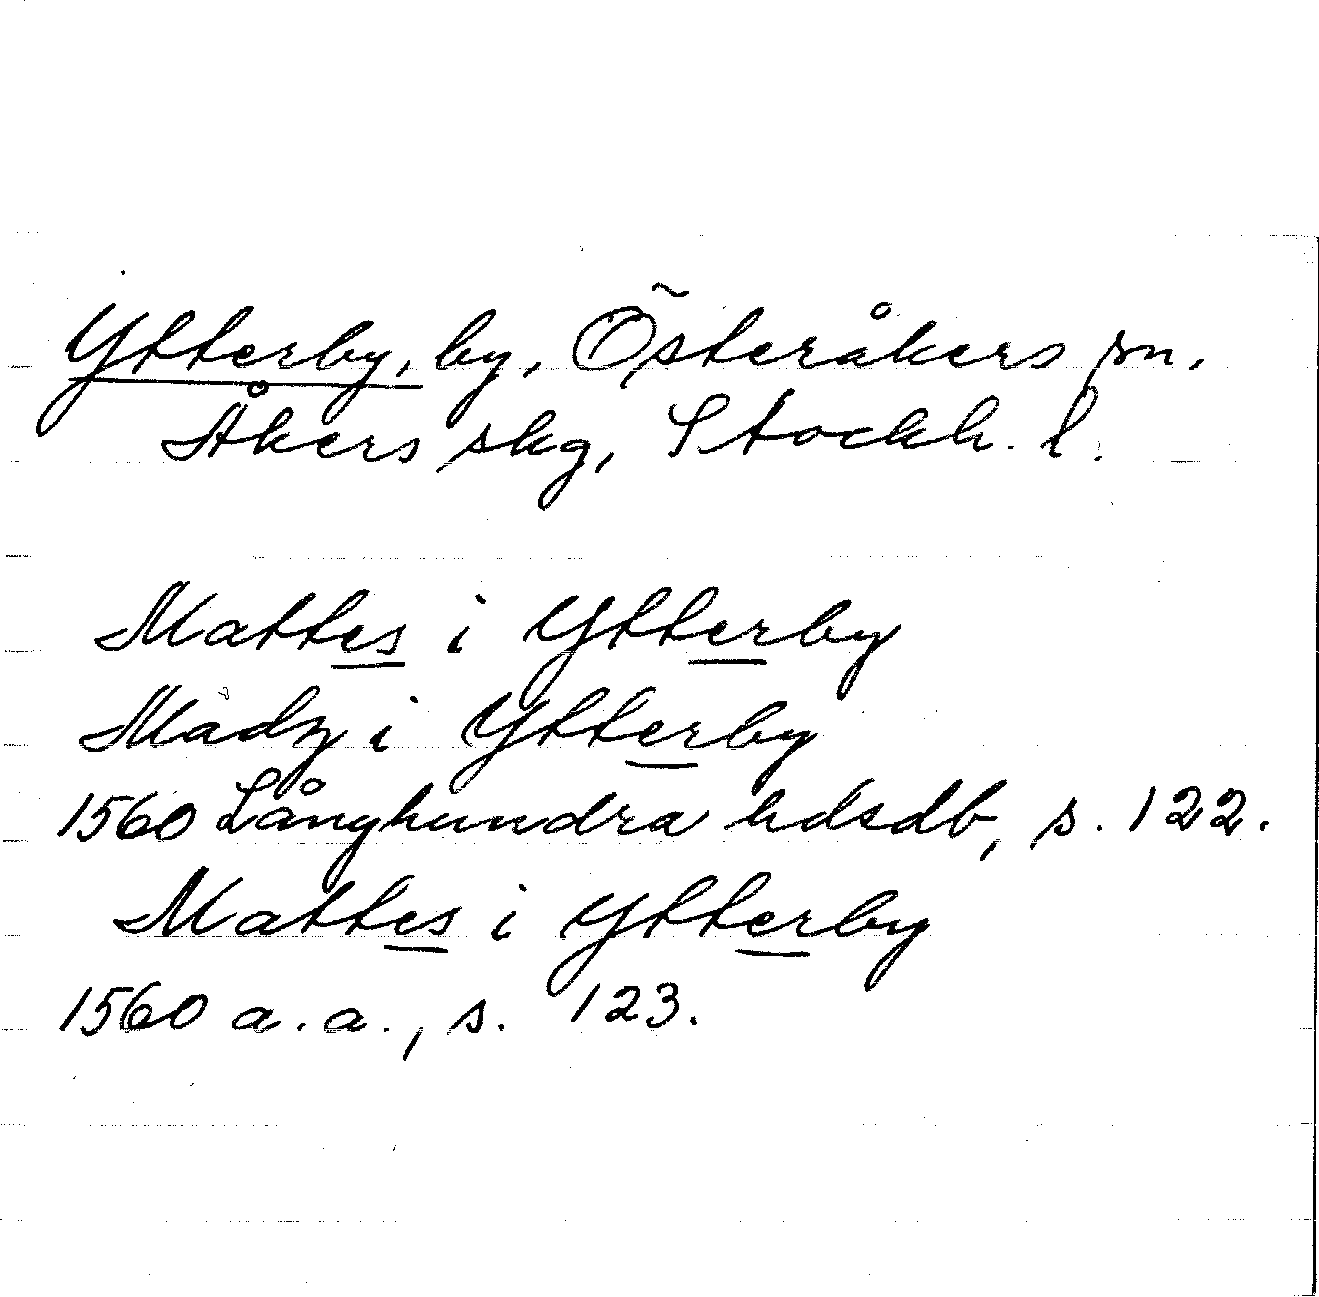 Ytterby, by, Österåkers sn,
Åkers skg, Stockh. l.
Mattes i Ytterby
Madz i Ytterby
1560 Långhundra hdsdb, s. 122.
Mattes i Ytterby
1560 a.a., s. 123.